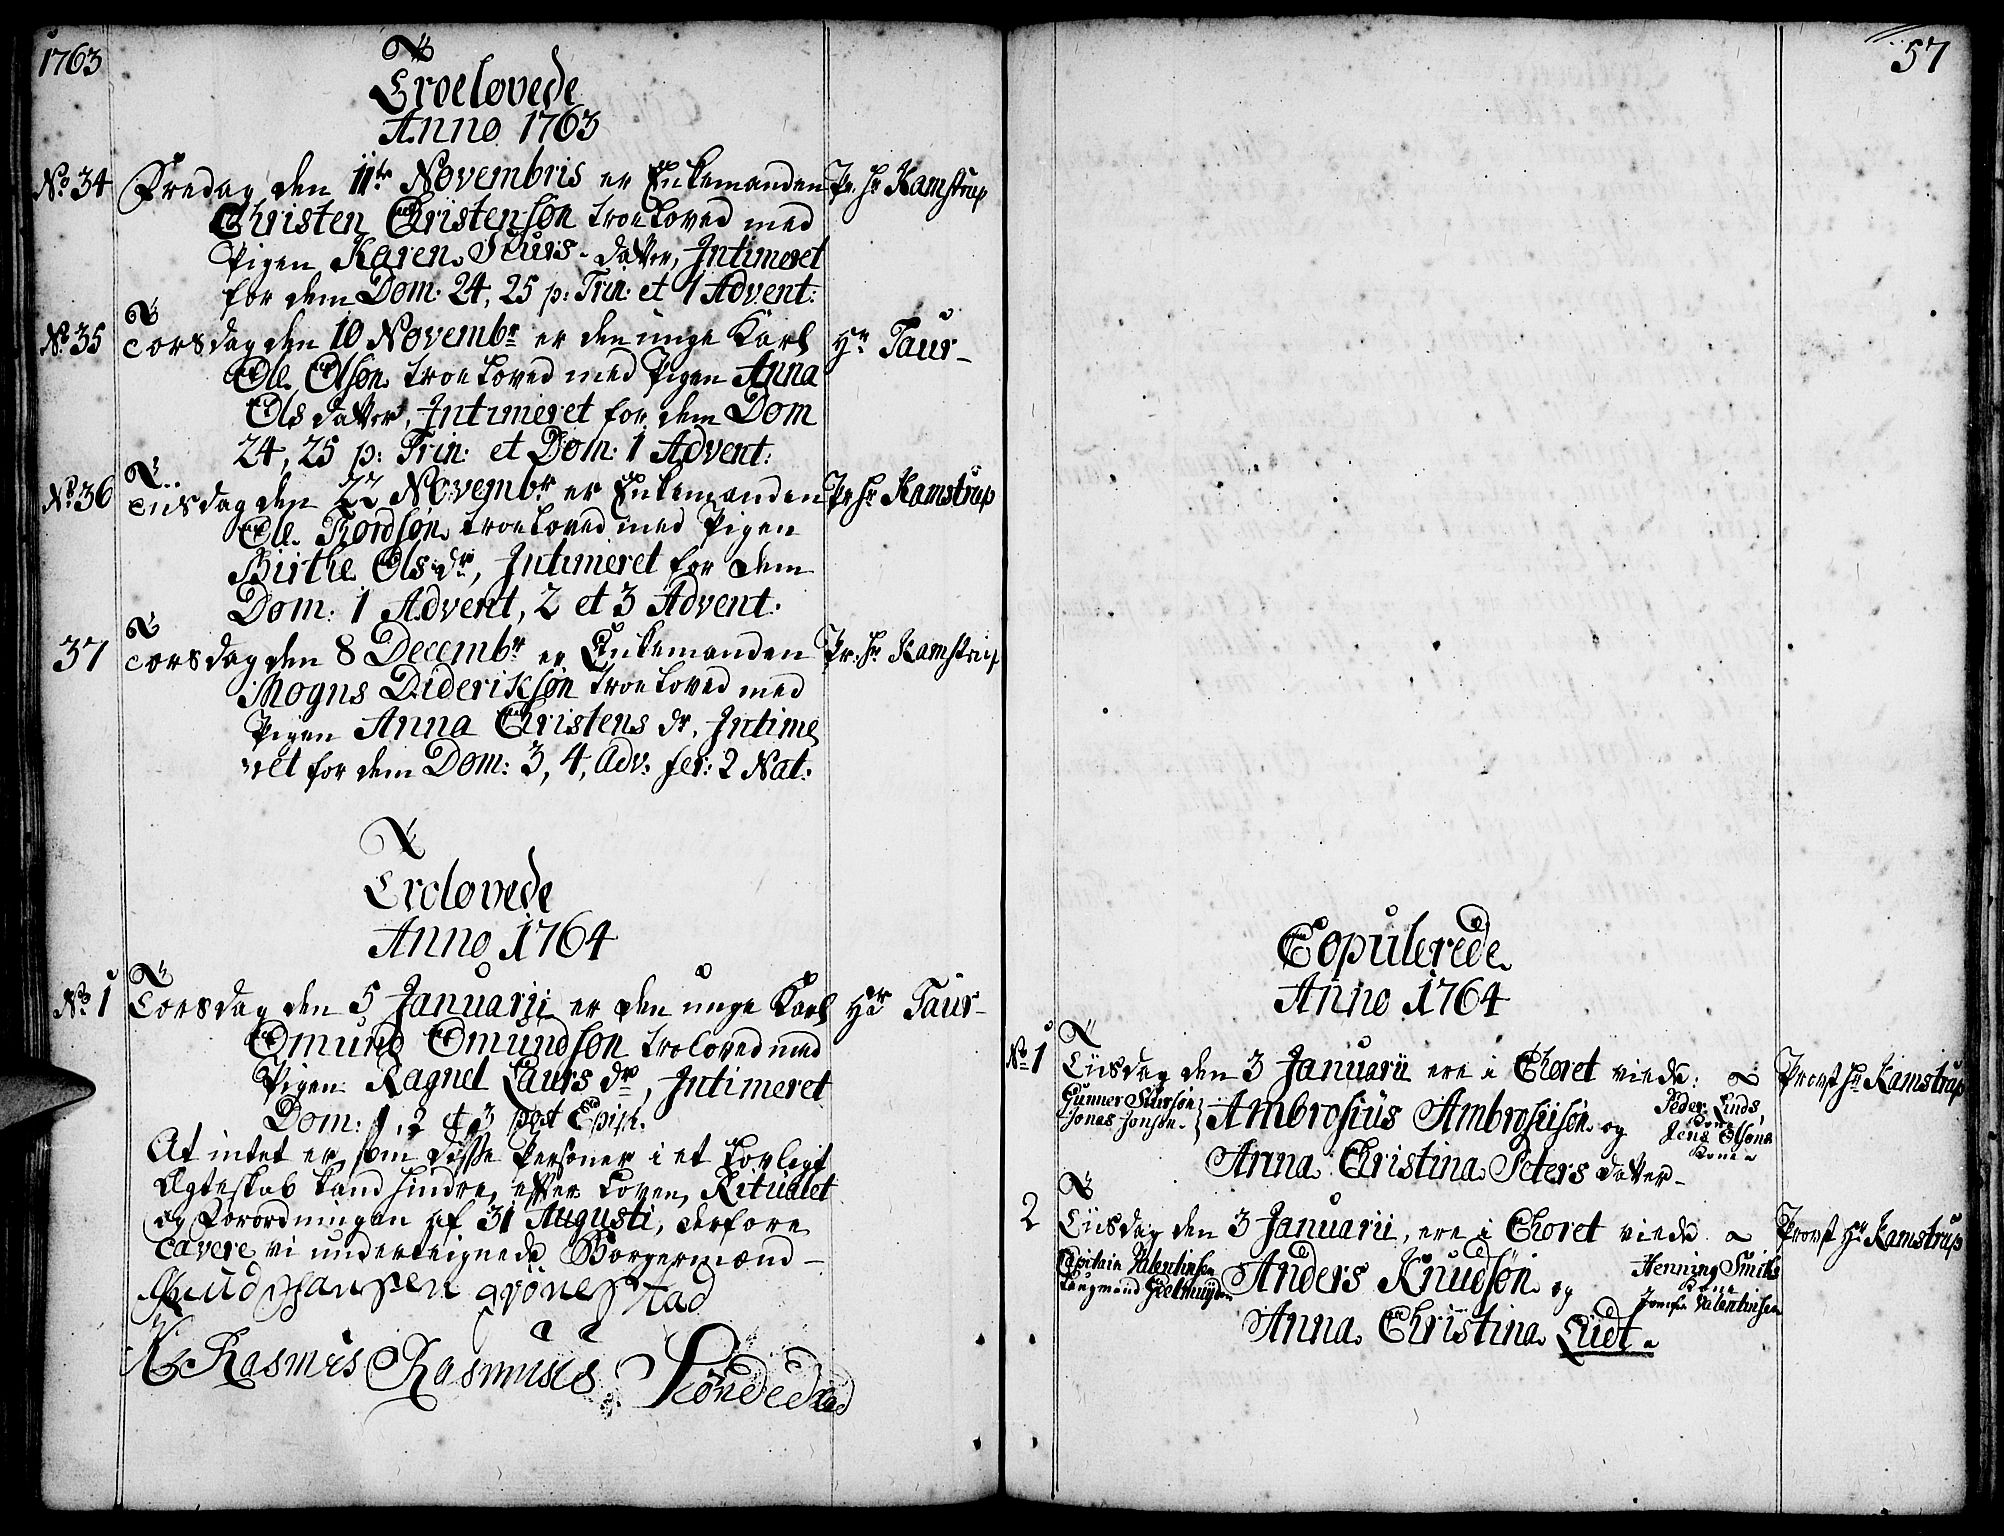 1763
Troelovede
Anno 1763
No. 34 Fredag den 11te Novembris er Enkemanden Pr. Hr Kamstrup
Christen Christensøn troeloved med
Pigen Karen Siurs-datter, Intimeret
for dem Dom: 24, 25 p: Trin: et 1 Advent:
No. 35 Torsdag den 10 Novembr er den unge Karl Hr Taur-
Ole Olsøn troeloved med Pigen Anna
Olsdatter, Intimeret for dem Dom
24, 25 p: Trin: et Dom: 1 Advent:
No. 36 Tiisdag den 22 Novembr er Enkemanden Pr Hr Kamstrup
Ole Tordsøn troeloved med Pigen
Birthe Olsdr, Intimeret for dem
Dom: 1 Advent, 2 et 3 Advent:
37 Torsdag den 8 Decembr er Enkemanden Pr. Hr Kamstrup
Mogns Dideriksøn troeloved med
Pigen Anna Christens dr, Intime
ret for dem Dom: 3, 4, Adv: fer: 2 Nat:
Troløvede
Anno 1764
No. 1 Torsdag den 5 Januarii er den unge Karl Hr Taur-
Omund Omundsøn troloved med
Pigen Ragnel Laurs dr, Intimeret
Dom: 1, 2 et 3 post Epiph.
At intet er, som disse Personer i et lovligt
Ægteskab kand hindre, efter Loven, Ritualet
og Forordningen af 31 Augusti, derfore
cavere vi underteignede Borgermænd-
Knud Hansen Grønestad
Rasmus Rasmusen
57
Copulerede
Anno 1764
No. 1 Tiisdag den 3 Januarii ere i Choret viede: Provst Hr Kamstrup
Gunner Siursøn
Jonas Jonsøn
Ambrosius Ambrosiisøn og
Peder Linds
kone
Jens Olsøns
kone
Anna Christina Peters datter-
2 Tiisdag den 3 Januarii, ere i Choret viede Provst Hr Kamstrup
Capitain Valentinsen
Laugmand Geelmuyden
Anders Knudsøn og
Henning Smiths
kone
Jomfr Valentinsen
Anna Christina Lüdt